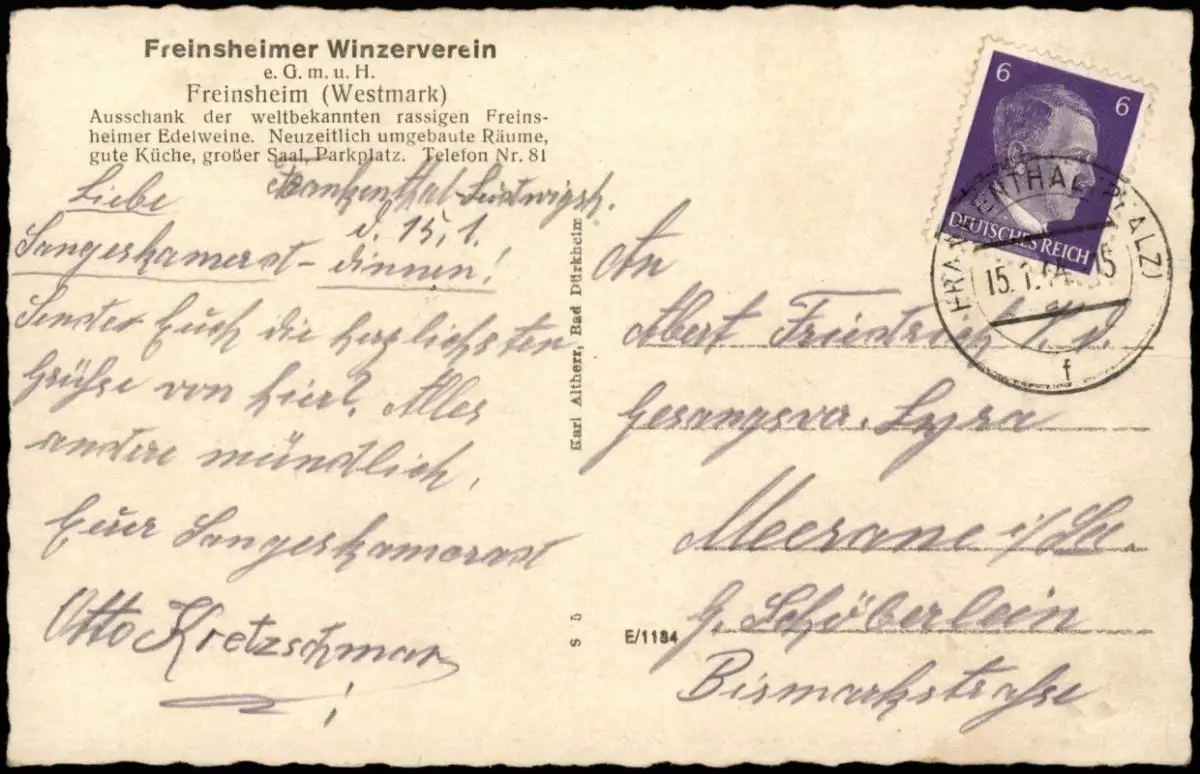 Freinsheimer Winzerverein
e. G. m. u. H.
Freinsheim (Westmark)
Ausschank der weltbekannten rassigen Freins-
heimer Edelweine. Neuzeitlich umgebaute Räume,
gute Küche, großer Saal, Parkplatz. Telefon Nr. 81
Frankenthal-Ludwigsh.
d. 15.1.
Liebe
Sangeskamerat-dinnen!
Sender Euch die herzlichsten
Grühse von hier. Alles
andere mündlich,
Euer Sangeskamerast
Otto Kretzschmar
!
Karl Altherr, Bad Dürkheim
S 5
E/1184
6 6
DEUTSCHES REICH
FRANKENTHAL (PFALZ)
15.1.44 15
f
An
Albert Friedrich
Gesangsver. Lyra
Meerane i/Sa.
G. Schöberlein
Bismarkstrahse